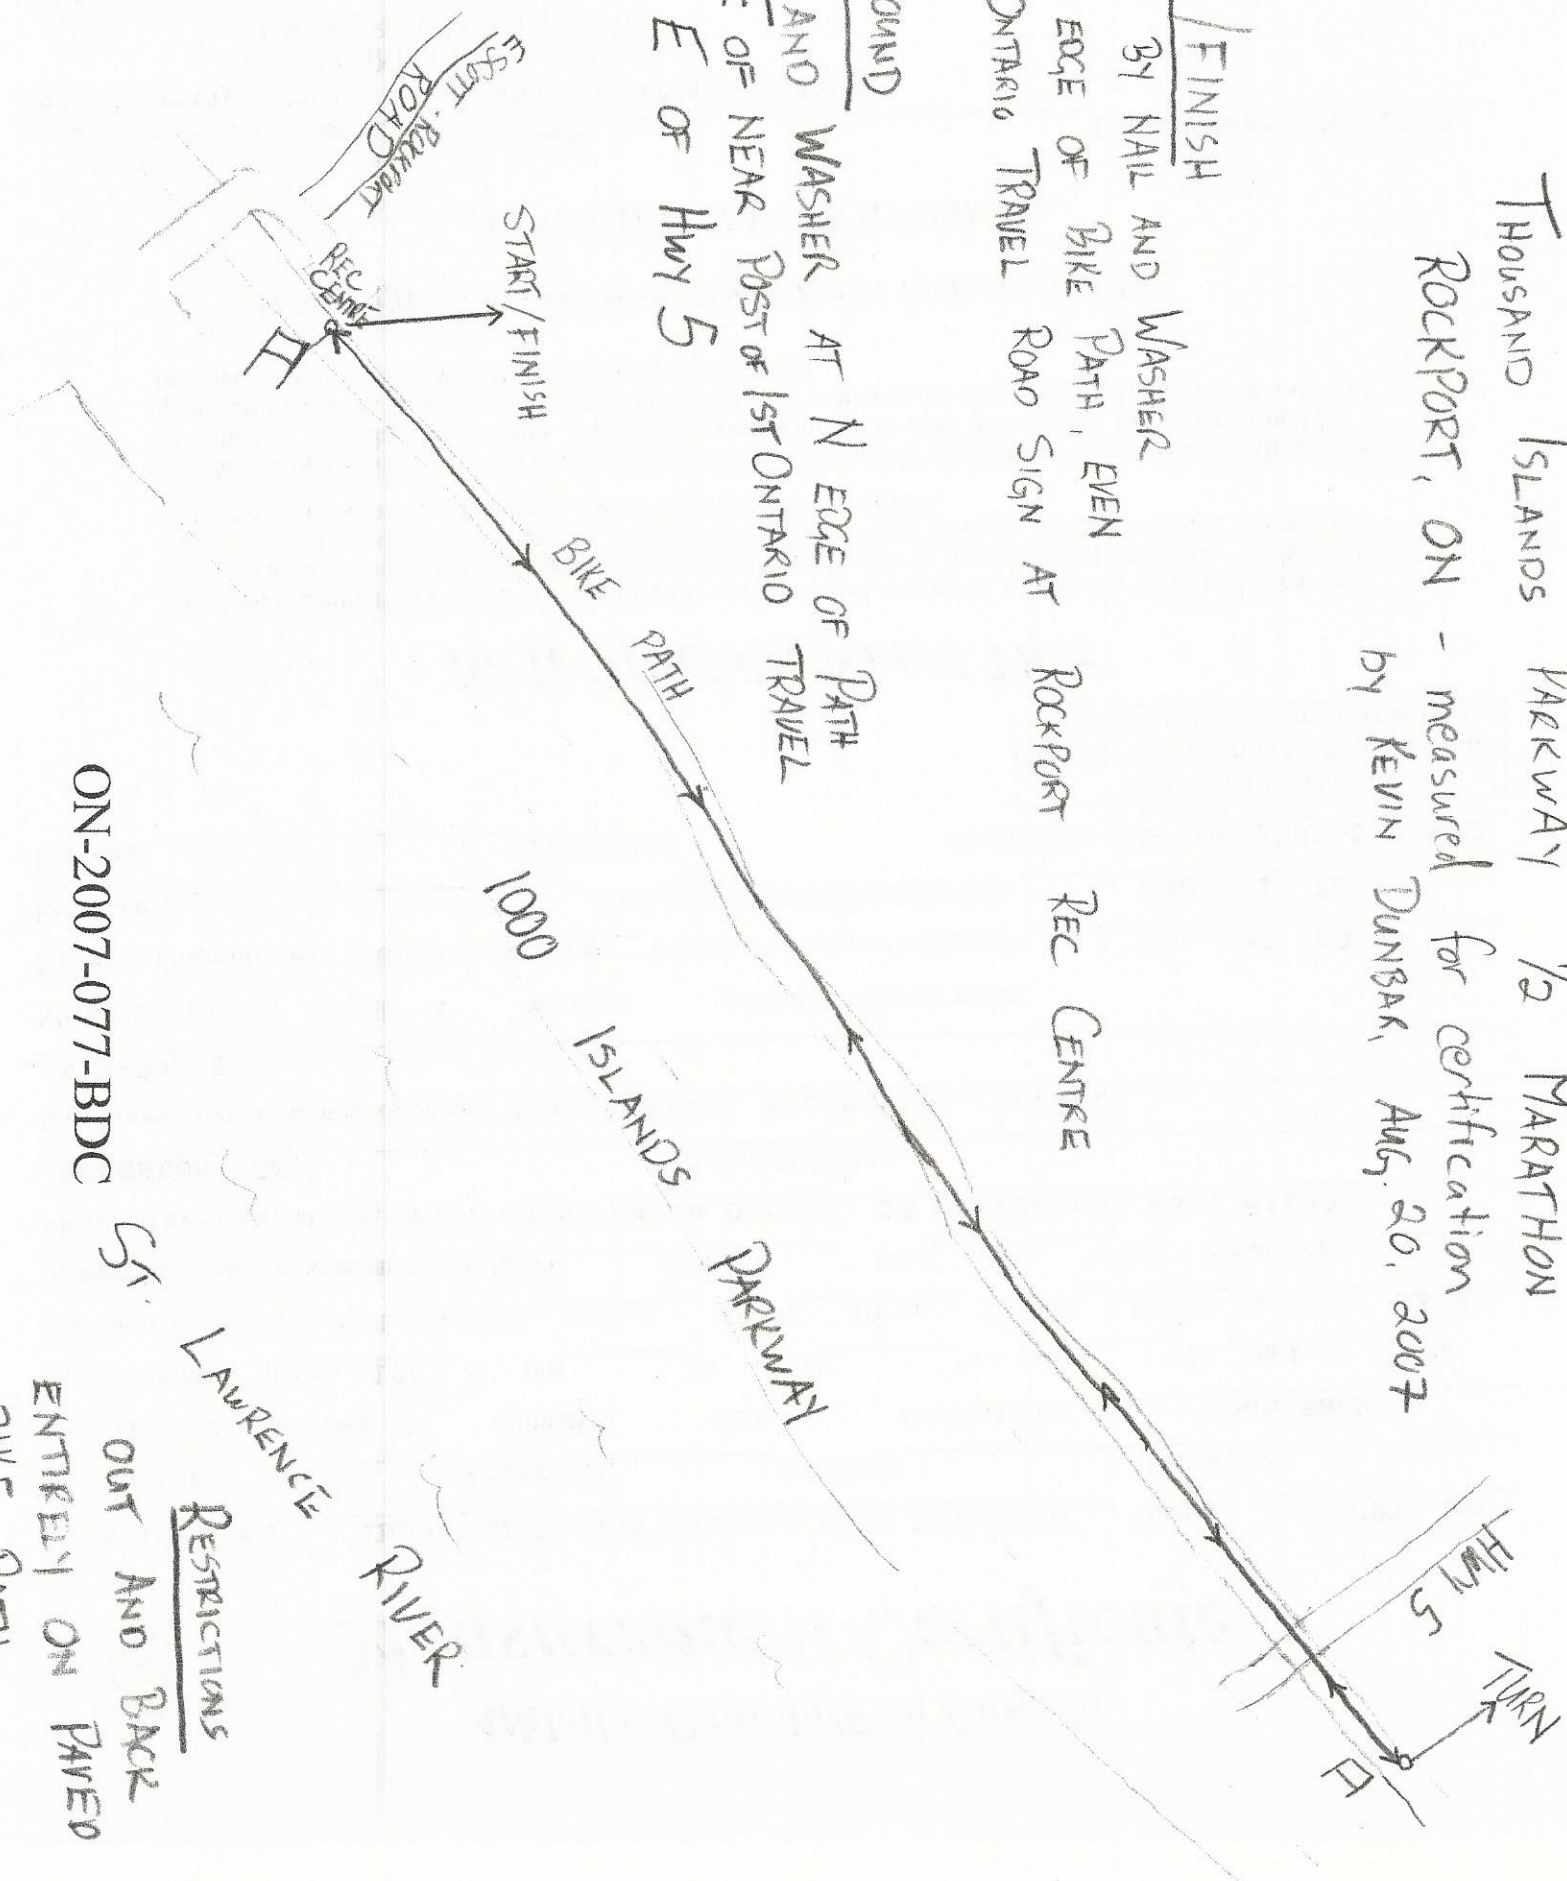 THOUSAND ISLANDS PARKWAY 1/2 MARATHON
ROCKPORT, ON - measured for certification
by KEVIN DUNBAR, AUG. 20, 2007
/FINISH
BY NAIL AND WASHER
EDGE OF BIKE PATH, EVEN
ONTARIO TRAVEL ROAD SIGN AT ROCKPORT REC CENTRE
OUND
AND WASHER AT N EDGE OF PATH
E OF NEAR POST OF 1ST ONTARIO TRAVEL
E OF HWY 5
ESCOTT-ROCKPORT
ROAD
REC
CENTRE
START/FINISH
BIKE PATH
1000 ISLANDS PARKWAY
HWY 5
TURN
ST. LAWRENCE RIVER
ON-2007-077-BDC
RESTRICTIONS
OUT AND BACK
ENTIRELY ON PAVED